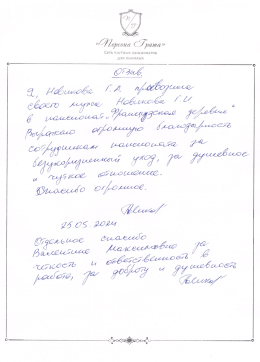 «Первая Грань»
Отзыв
Я, Новикова Г.А. проводила
своего мужа Новикова Г.И
в пансионат „Французская деревня"
Выражаю огромную благодарность
сотрудникам пансионата за
безукоризненный уход, за душевное
и чуткое отношение.
Спасибо огромное.
25.05 2024
Отдельное спасибо
Валентине Максимовне за
четкость и ответственность в
работе, за доброту и душевность